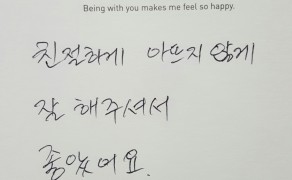 Being with you makes me feel so happy.
친절하게 아프지 않게
잘 해주셔서
좋았어요.